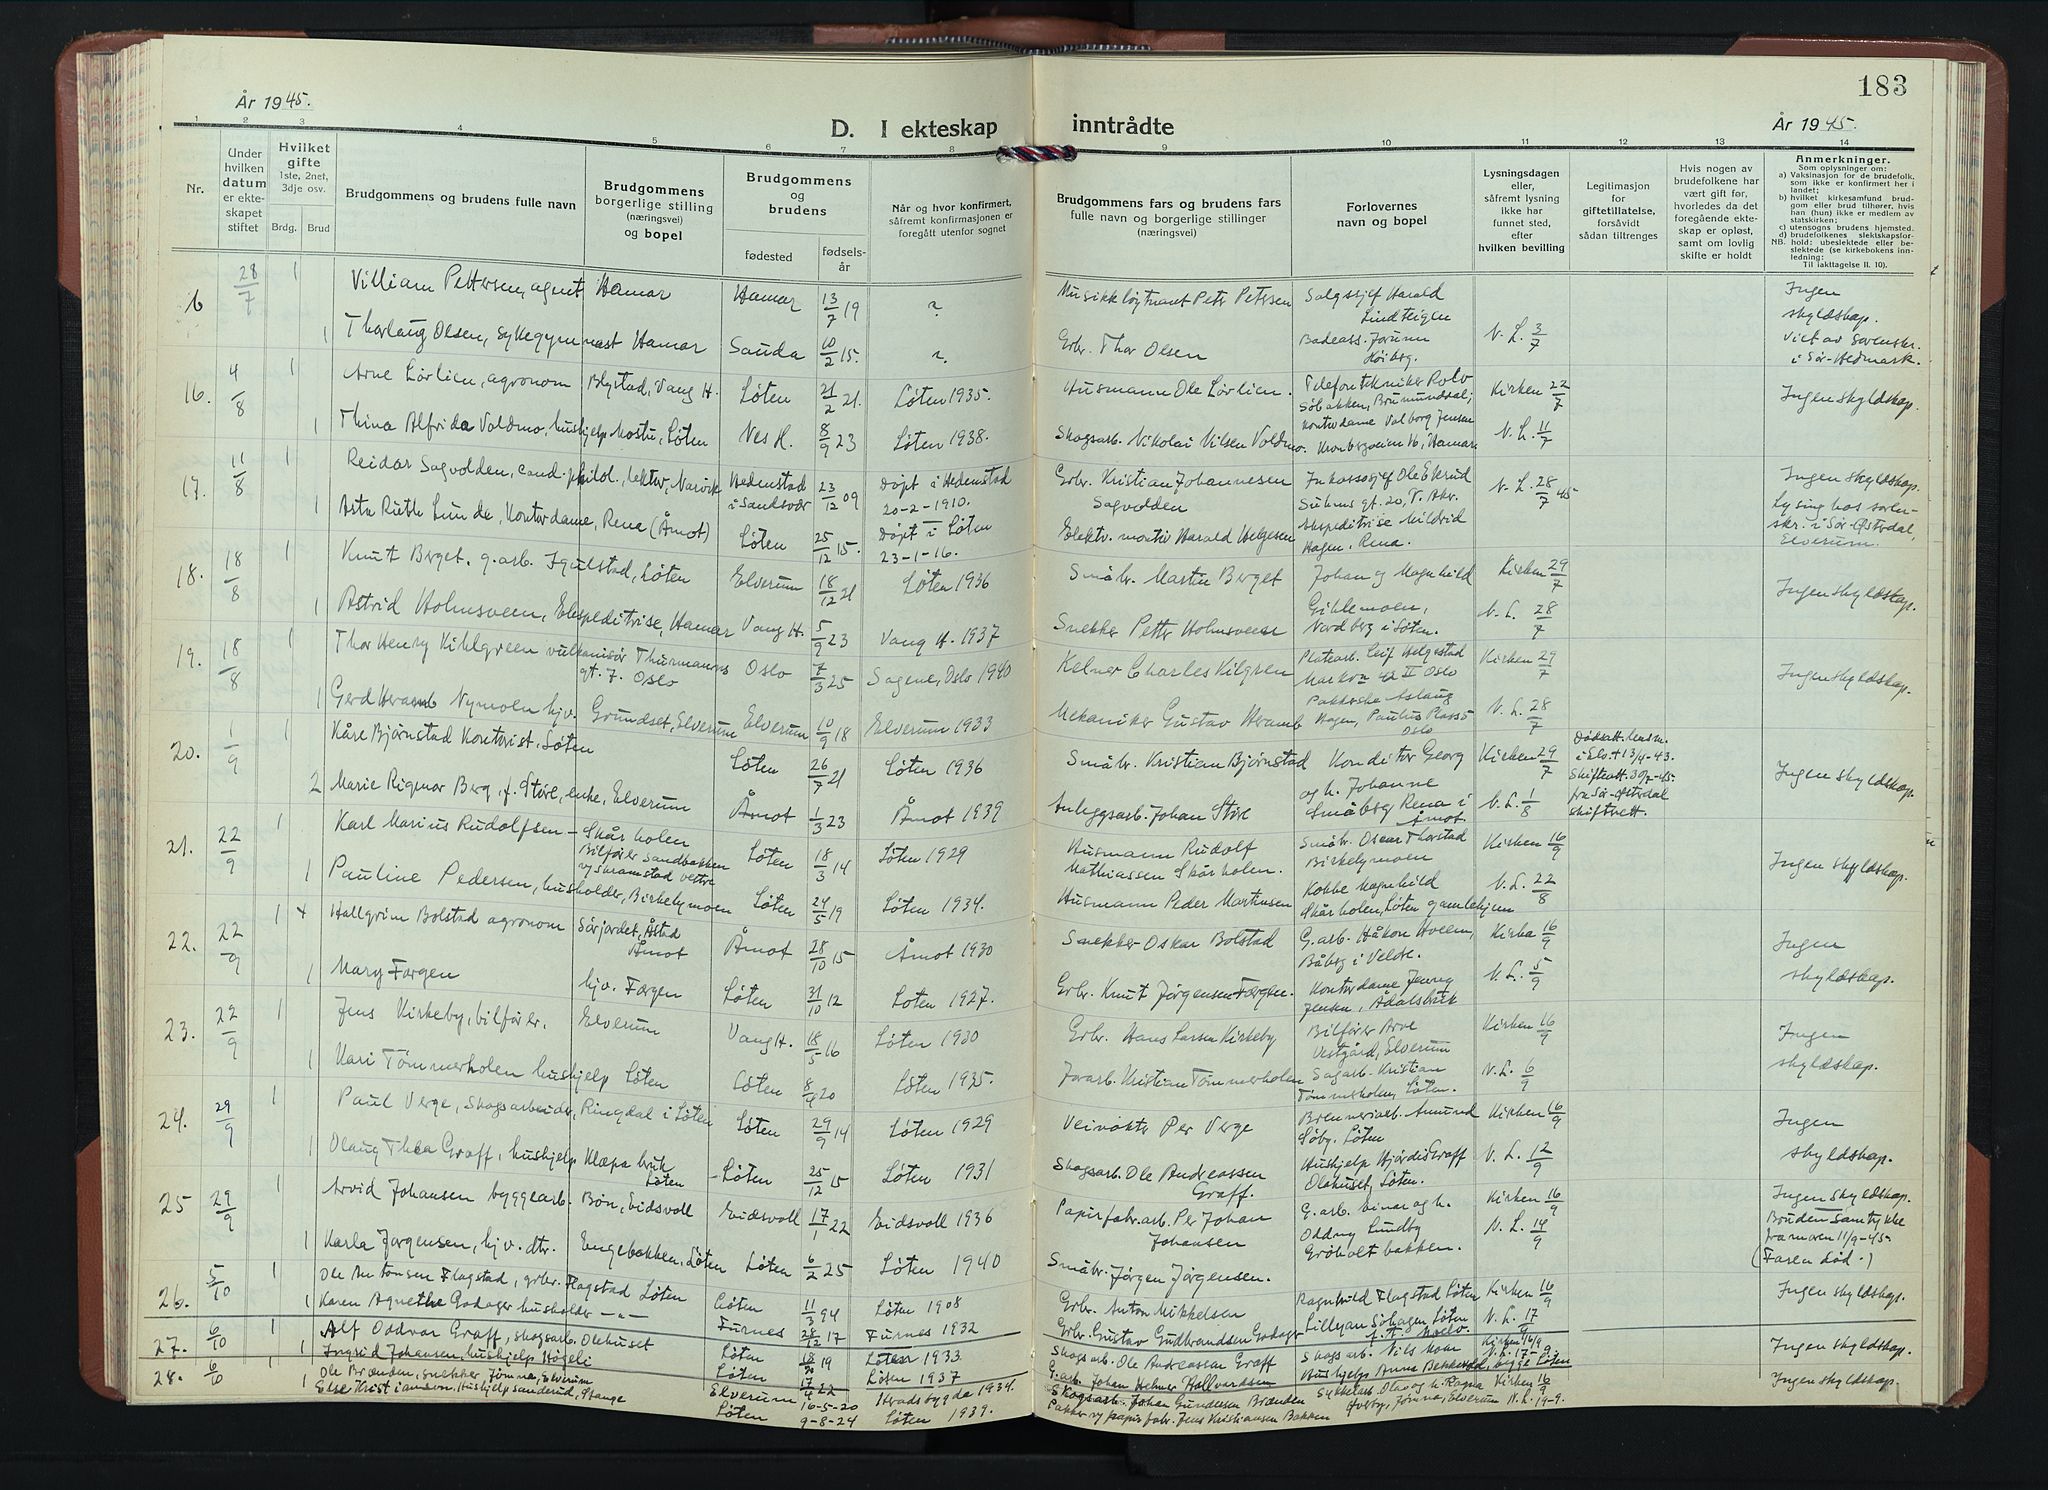 183
År 1945.
D. I ekteskap inntrådte
År 1945.
1 2 3 4 5 6 7 8 9 10 11 12 13 14
Nr.
Under hvilken datum er ekteskapet stiftet
Hvilket gifte 1ste, 2net, 3dje osv.
Brdg. Brud
Brudgommens og brudens fulle navn
Brudgommens borgerlige stilling (næringsvei) og bopel
Brudgommens og brudens
fødested
fødselsår
Når og hvor konfirmert, såfremt konfirmasjonen er foregått utenfor sognet
Brudgommens fars og brudens fars fulle navn og borgerlige stillinger (næringsvei)
Forlovernes navn og bopel
Lysningsdagen eller, såfremt lysning ikke har funnet sted, efter hvilken bevilling
Legitimasjon for giftetillatelse, forsåvidt sådan tiltrenges
Hvis nogen av brudefolkene har vært gift før, hvorledes da det foregående ekteskap er opløst, samt om lovlig skifte er holdt
Anmerkninger.
Som oplysninger om:
a) Vaksinasjon for de brudefolk, som ikke er konfirmert her i landet;
b) hvilket kirkesamfund brudgom eller brud tilhører, hvis han (hun) ikke er medlem av statskirken;
c) utensogns brudens hjemsted.
d) brudefolkenes slektskapsforhold: ubeslektede eller beslektede (se kirkebokens innledning:
NB. Til iakttagelse II. 10).
6 28/7 1 Villiam Pettersen, agent Hamar Hamar 13/7 19 ? Musikkløytnant Peter Petersen Salgssjef Harald Lindteigen Ingen skyldskap.
1 Thorlaug Olsen, sykegymnast Hamar Sauda 10/2 15. ?. Grbr. Thor Olsen Badeass. Jorunn Høiberg. N. L. 3/7 Viet av Sorenskr. i Sør-Hedmark.
16. 4/8 1 Arne Lørlien, agronom Blystad, Vang H. Løten 21/2 21. Løten 1935. Husmann Ole Lørlien. Telefontekniker Rolv Søbakken, Brumunddal; Kirken 22/7 Ingen skyldskap.
1 Thina Alfrida Voldmo, hushjelp Mostu, Løten Nes H. 8/9 23 Løten 1938. Skogsarb. Nikolai Nilsen Voldmo. Kontordame Valborg Jensen Kronborgveien 16, Hamar N. L. 11/7
17. 11/8 1 Reidar Sagvolden, cand. philol., lektor, Narvik Hedenstad i Sandsvær 23/12 09 Døpt i Hedenstad 20-2-1910. Grbr. Kristian Johannesen Sagvolden Inkassosjef Ole Ekrud Suhms gt. 20, V. Aker. N. L. 28/7 45 Ingen skyldskap.
1 Asta Ruth Lunde, Kontordame, Rena (Åmot) Løten 25/12 15. Døpt i Løten 23-1-16. Elektr. montør Harald Helgesen Ekspeditrise Mildrid Hagen, Rena. Lysing hos sorenskr. i Sør-Østerdal, Elverum.
18. 18/8 1 Knut Berget. g.arb. Igulstad, Løten Elverum 18/12 21 Løten 1936 Småbr. Martin Berget Johan og Magnhild Kirken 29/7 Ingen skyldskap.
1 Astrid Holmsveen, Ekspeditrise, Hamar Vang H. 5/9 23 Vang H. 1937 Snekker Petter Holmsveen Gihlemoen, Nordbyg i Løten. N. L. 28/7
19. 18/8 1 Thor Henry Kihlgreen vulkanisør Thurmanns gt. 7. Oslo Oslo 7/3 25 Sagene, Oslo 1940 Kelner Charles Kilgren Platearb. Leif Helgestad Markvn 42 II Oslo Kirken 29/7 Ingen skyldskap.
1 Gerd Heramb Nymoen hjv. Grundset, Elverum Elverum 10/9 18 Elverum 1933 Mekaniker Gustav Heramb Pakkerske Aslaug Hagen, Paulus Plass 5 Oslo N. L. 28/7
20. 1/9 1 Kåre Bjørnstad Kontorist. Løten Løten 26/7 21 Løten 1936 Småbr. Kristian Bjørnstad Konditor Georg Kirken 29/7 Dødsatt. lensm. i Elv. + 13/4-43. Skifteatt. 30/7-45. fra Sør-Østerdal skifterett. Ingen skyldskap.
2 Marie Rigmor Berg, f. Støre, enke, Elverum Åmot 1/3 23 Åmot 1939 Anleggsarb. Johan Støre og h. Johanne Småberg Rena i Åmot N. L. 1/8
21. 22/9 1 Karl Marius Rudolfsen - Skårholen Bilfører Sandbakken v/ Skramstad vestre Løten 18/3 14 Løten 1929 Husmann Rudolf Mathiassen Skårholen. Småbr. Oscar Thorstad Birkelymoen Kirken 16/9 Ingen skyldskap.
1 Pauline Pedersen, husholder, Birkelymoen Løten 24/5 19 Løten 1934. Husmann Peder Martinsen Kokke Magnhild Skårholen, Løten gamlehjem N. L. 22/8
22. 22/9 1 + Hallgrim Bolstad agronom Sørjordet, Åstad Åmot Åmot 28/10 15 Åmot 1930 Snekker Oskar Bolstad G.arb. Håkon Hveem, Båberg i Veldre. Kirke 16/9 Ingen skyldskap.
1 Mary Færgen hjv. Færgen Løten 31/10 12 Løten 1927. Grbr. Knut Jørgensen Færgen. Kontordame Jenny Jensen, Ådalsbruk N. L. 5/9
23. 22/9 1 Jens Kirkeby, bilfører. Elverum Vang H. 18/5 16 Løten 1930 Grbr. Hans Larsen Kirkeby Bilfører Arve Vestgård, Elverum Kirken 16/9 Ingen skyldskap.
1 Kari Tömmerholen hushjelp Løten Løten 8/9 20 Løten 1935. Jorarb. Kristian Tömmerholen Sagarb. Kristian Tömmerholen, Løten. N. L. 6/9
24. 29/9 1 Paul Verge, Skogsarbeider, Ringdal i Løten Løten 29/9 14 Løten 1929 Veivokter Per Verge Brenneriarb. Amund Søby. Løten Kirken 16/9 Ingen skyldskap.
1 Olaug Thea Graff, hushjelp Klæpa bruk Løten Løten 25/12 15 Løten 1931 Skogsarb. Ole Andreassen Graff. Hushjelp Hjørdis Graff Olahuset, Løten. N. L. 12/9
25 29/9 1 Arvid Johansen byggearb. Bøn, Eidsvoll Eidsvoll 17/1 22 Eidsvoll 1936 Papirfabr.arb. Per Johan Johansen G.arb. Einar og h. Kirken 16/9 Ingen skyldskap.
1 Karla Jørgensen, hjv. dtr. Engebakken, Løten Løten 6/2 25 Løten 1940 Småbr. Jørgen Jørgensen. Oddny Lundby Grøholtbakken. N. L. 14/9 Bruden samtykke fra moren 11/9-45 (Faren død.)
26. 5/10 1 Ole Antonsen Flagstad, grbr. Flagstad Løten Løten 11/3 94 Løten 1908 Grbr. Anton Mikkelsen Ragnhild Flagstad Løten Kirken 16/9 Ingen skyldskap.
1 Karen Agnethe Godager husholder -"- Furnes 28/12 17 Furnes 1932 Grbr. Gustav Gudbrandsen Godager Lillian Søhagen, Løten N. L. 17/9
27. 6/10 1 Alf Oddvar Graff, skogsarb. Olehuset Løten 19 Løten 1933 Skogsarb. Ole Andreassen Graff Skogsarb. Nils Moen Kirken 16/9 N. L. 17-9. Ingen skyldskap.
1 Ingrid Johansen, hushjelp Høgeli Løten 22 Løten 1937 G.arb. Johan Helmer Hallvardsen Hushjelp Anna Bekkevold, Løten
28. 6/10 1 Ole Brænden, snekker, Jømna, Elverum Elverum 16-5-20 Stradsbygda 1934. Skogsarb. Johan Gundersen Brænden Olav og h. Ragna Kirken 16/9 Ingen skyldskap.
1 Else Kristiansen, Hushjelp Sanderud, Stange Løten 9-8-24 Løten 1939. Pakker v/ papirfabr. Jens Kristiansen Bakken Jømna, Elverum N. L. 19-9.